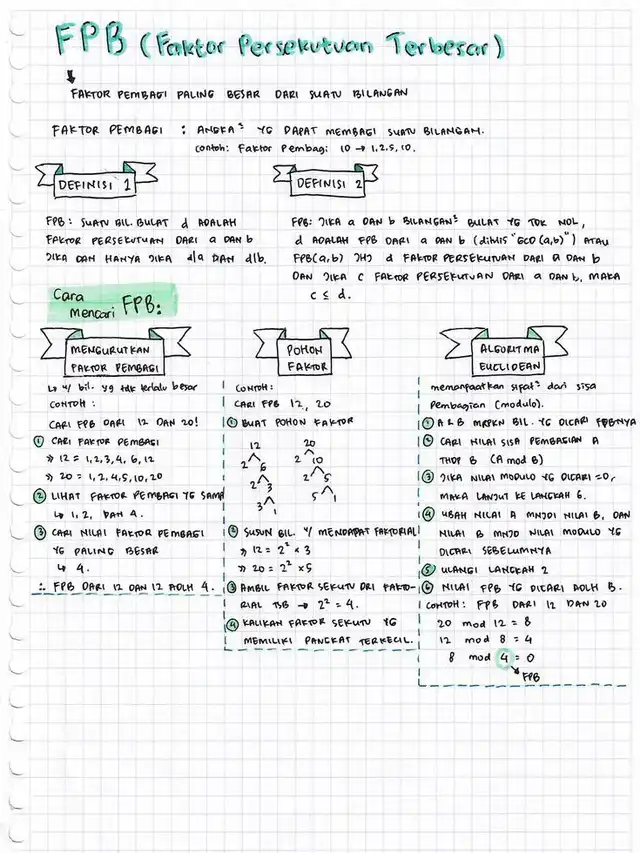 FPB (Faktor Persekutuan Terbesar)
FAKTOR PEMBAGI PALING BESAR DARI SUATU BILANGAN
FAKTOR PEMBAGI : ANGKA² YG DAPAT MEMBAGI SUATU BILANGAN.
contoh: Faktor Pembagi 10 → 1,2,5,10.
DEFINISI 1
FPB: SUATU BIL. BULAT d ADALAH
FAKTOR PERSEKUTUAN DARI a DAN b
JIKA DAN HANYA JIKA d|a DAN d|b.
DEFINISI 2
FPB: JIKA a DAN b BILANGAN² BULAT YG TDK NOL,
d ADALAH FPB DARI a DAN b (ditulis "GCD (a,b)") ATAU
FPB(a,b) JHJ d FAKTOR PERSEKUTUAN DARI a DAN b
DAN JIKA C FAKTOR PERSEKUTUAN DARI a DAN b, MAKA
C ≤ d.
Cara
Mencari FPB:
MENGURUTKAN
FAKTOR PEMBAGI
↳ u/ bil. yg tdk terlalu besar
CONTOH :
CARI FPB DARI 12 DAN 20!
① CARI FAKTOR PEMBAGI
» 12 = 1,2,3,4,6,12
» 20 = 1,2,4,5,10,20
② LIHAT FAKTOR PEMBAGI YG SAMA
↳ 1,2, DAN 4.
③ CARI NILAI FAKTOR PEMBAGI
YG PALING BESAR
↳ 4.
∴ FPB DARI 12 DAN 12 ADLH 4.
POHON
FAKTOR
CONTOH:
CARI FPB 12, 20
① BUAT POHON FAKTOR
12 20
2 6 2 10
2 3 2 5
3 1 5 1
② SUSUN BIL. U/ MENDAPAT FAKTORIAL
» 12 = 2² × 3
» 20 = 2² × 5
③ AMBIL FAKTOR SEKUTU DRI FAKTO-
RIAL TSB → 2² = 4.
④ KALIKAN FAKTOR SEKUTU YG
MEMILIKI PANGKAT TERKECIL.
ALGORITMA
EUCLIDEAN
memanfaatkan sifat² dari sisa
Pembagian (modulo).
① A & B MRPKN BIL. YG DICARI FPBNYA
② CARI NILAI SISA PEMBAGIAN A
THDP B (A mod B)
③ JIKA NILAI MODULO YG DICARI =0,
MAKA LANJUT KE LANGKAH 6.
④ UBAH NILAI A MNJDI NILAI B, DAN
NILAI B MNJD NILAI MODULO YG
DICARI SEBELUMNYA
⑤ ULANGI LANGKAH 2
⑥ NILAI FPB YG DICARI ADLH B.
CONTOH: FPB DARI 12 DAN 20
20 mod 12 = 8
12 mod 8 = 4
8 mod 4 = 0
FPB